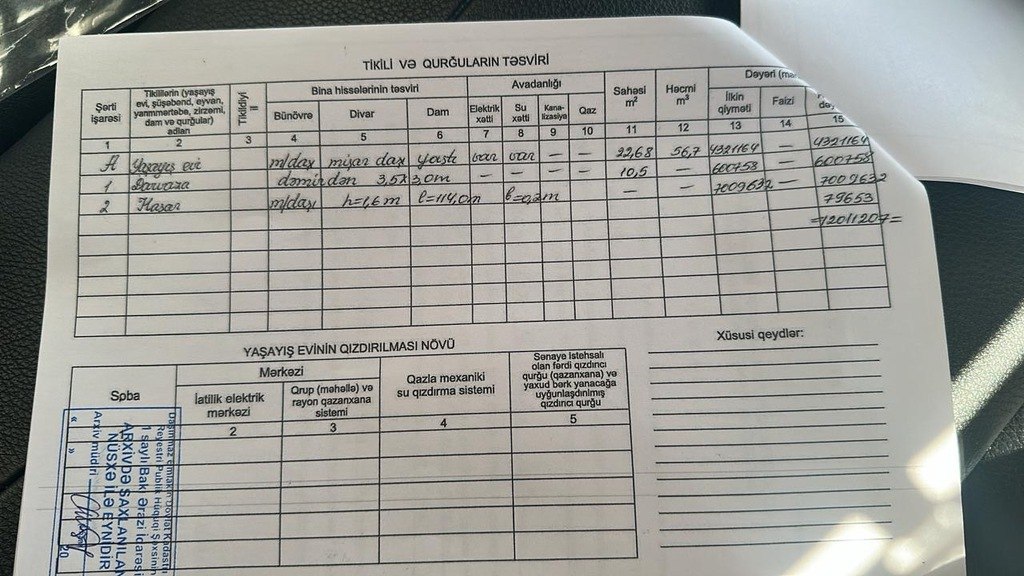 TİKİLİ VƏ QURĞULARIN TƏSVİRİ
Şərti işarəsi
Tikililərin (yaşayış evi, şüşəbənd, eyvan, yarımmərtəbə, zirzəmi, dam və qurğular) adları
Tikildiyi il
Bina hissələrinin təsviri
Avadanlığı
Sahəsi m²
Həcmi m³
Dəyəri
Bünövrə Divar Dam
Elektrik xətti
Su xətti
Kanalizasiya
Qaz
İlkin qiyməti
Faizi
1 2 3 4 5 6 7 8 9 10 11 12 13 14 15
A Yaşayış evi m/daş mişar daş yastı var var — — 22,68 56,7 4321164 — 4321164
1 Darvaza dəmirdən 3,5x3,0m — — — — 10,5 — 600758 — 600758
2 Hasar m/daşı h=1,6m l=114,0m b=0,2m — — 7009632 — 7009632
79653
=12011207=
YAŞAYIŞ EVİNİN QIZDIRILMASI NÖVÜ
Xüsusi qeydlər:
Soba
Mərkəzi
İatilik elektrik mərkəzi
Qrup (məhəllə) və rayon qazanxana sistemi
Qazla mexaniki su qızdırma sistemi
Sənaye istehsalı olan fərdi qızdırıcı qurğu (qazanxana) və yaxud bərk yanacağa uyğunlaşdırılmış qızdırıcı qurğu
2 3 4 5
Daşınmaz Əmlakın Dövlət Kadastrı
Reyestri Publik Hüquqi Şəxsinin
1 saylı Bakı Ərazi İdarəsi
ARXİVDƏ SAXLANILAN
NÜSXƏ İLƏ EYNİDİR
Arxiv müdiri
« » 20